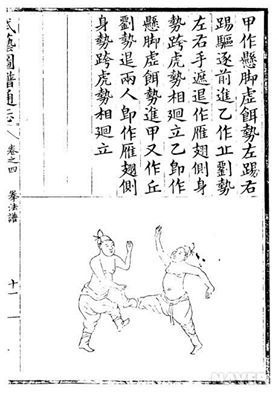 甲作懸脚虛餌勢左踢右
踢驅逐前進乙作丘劉勢
左右手遮退作雁翅側身
勢跨虎勢相廻立乙卽作
懸脚虛餌勢進甲又作丘
劉勢退兩人卽作雁翅側
身勢跨虎勢相廻立
武藝圖譜通志
卷之四
拳法譜
十一
NAVER